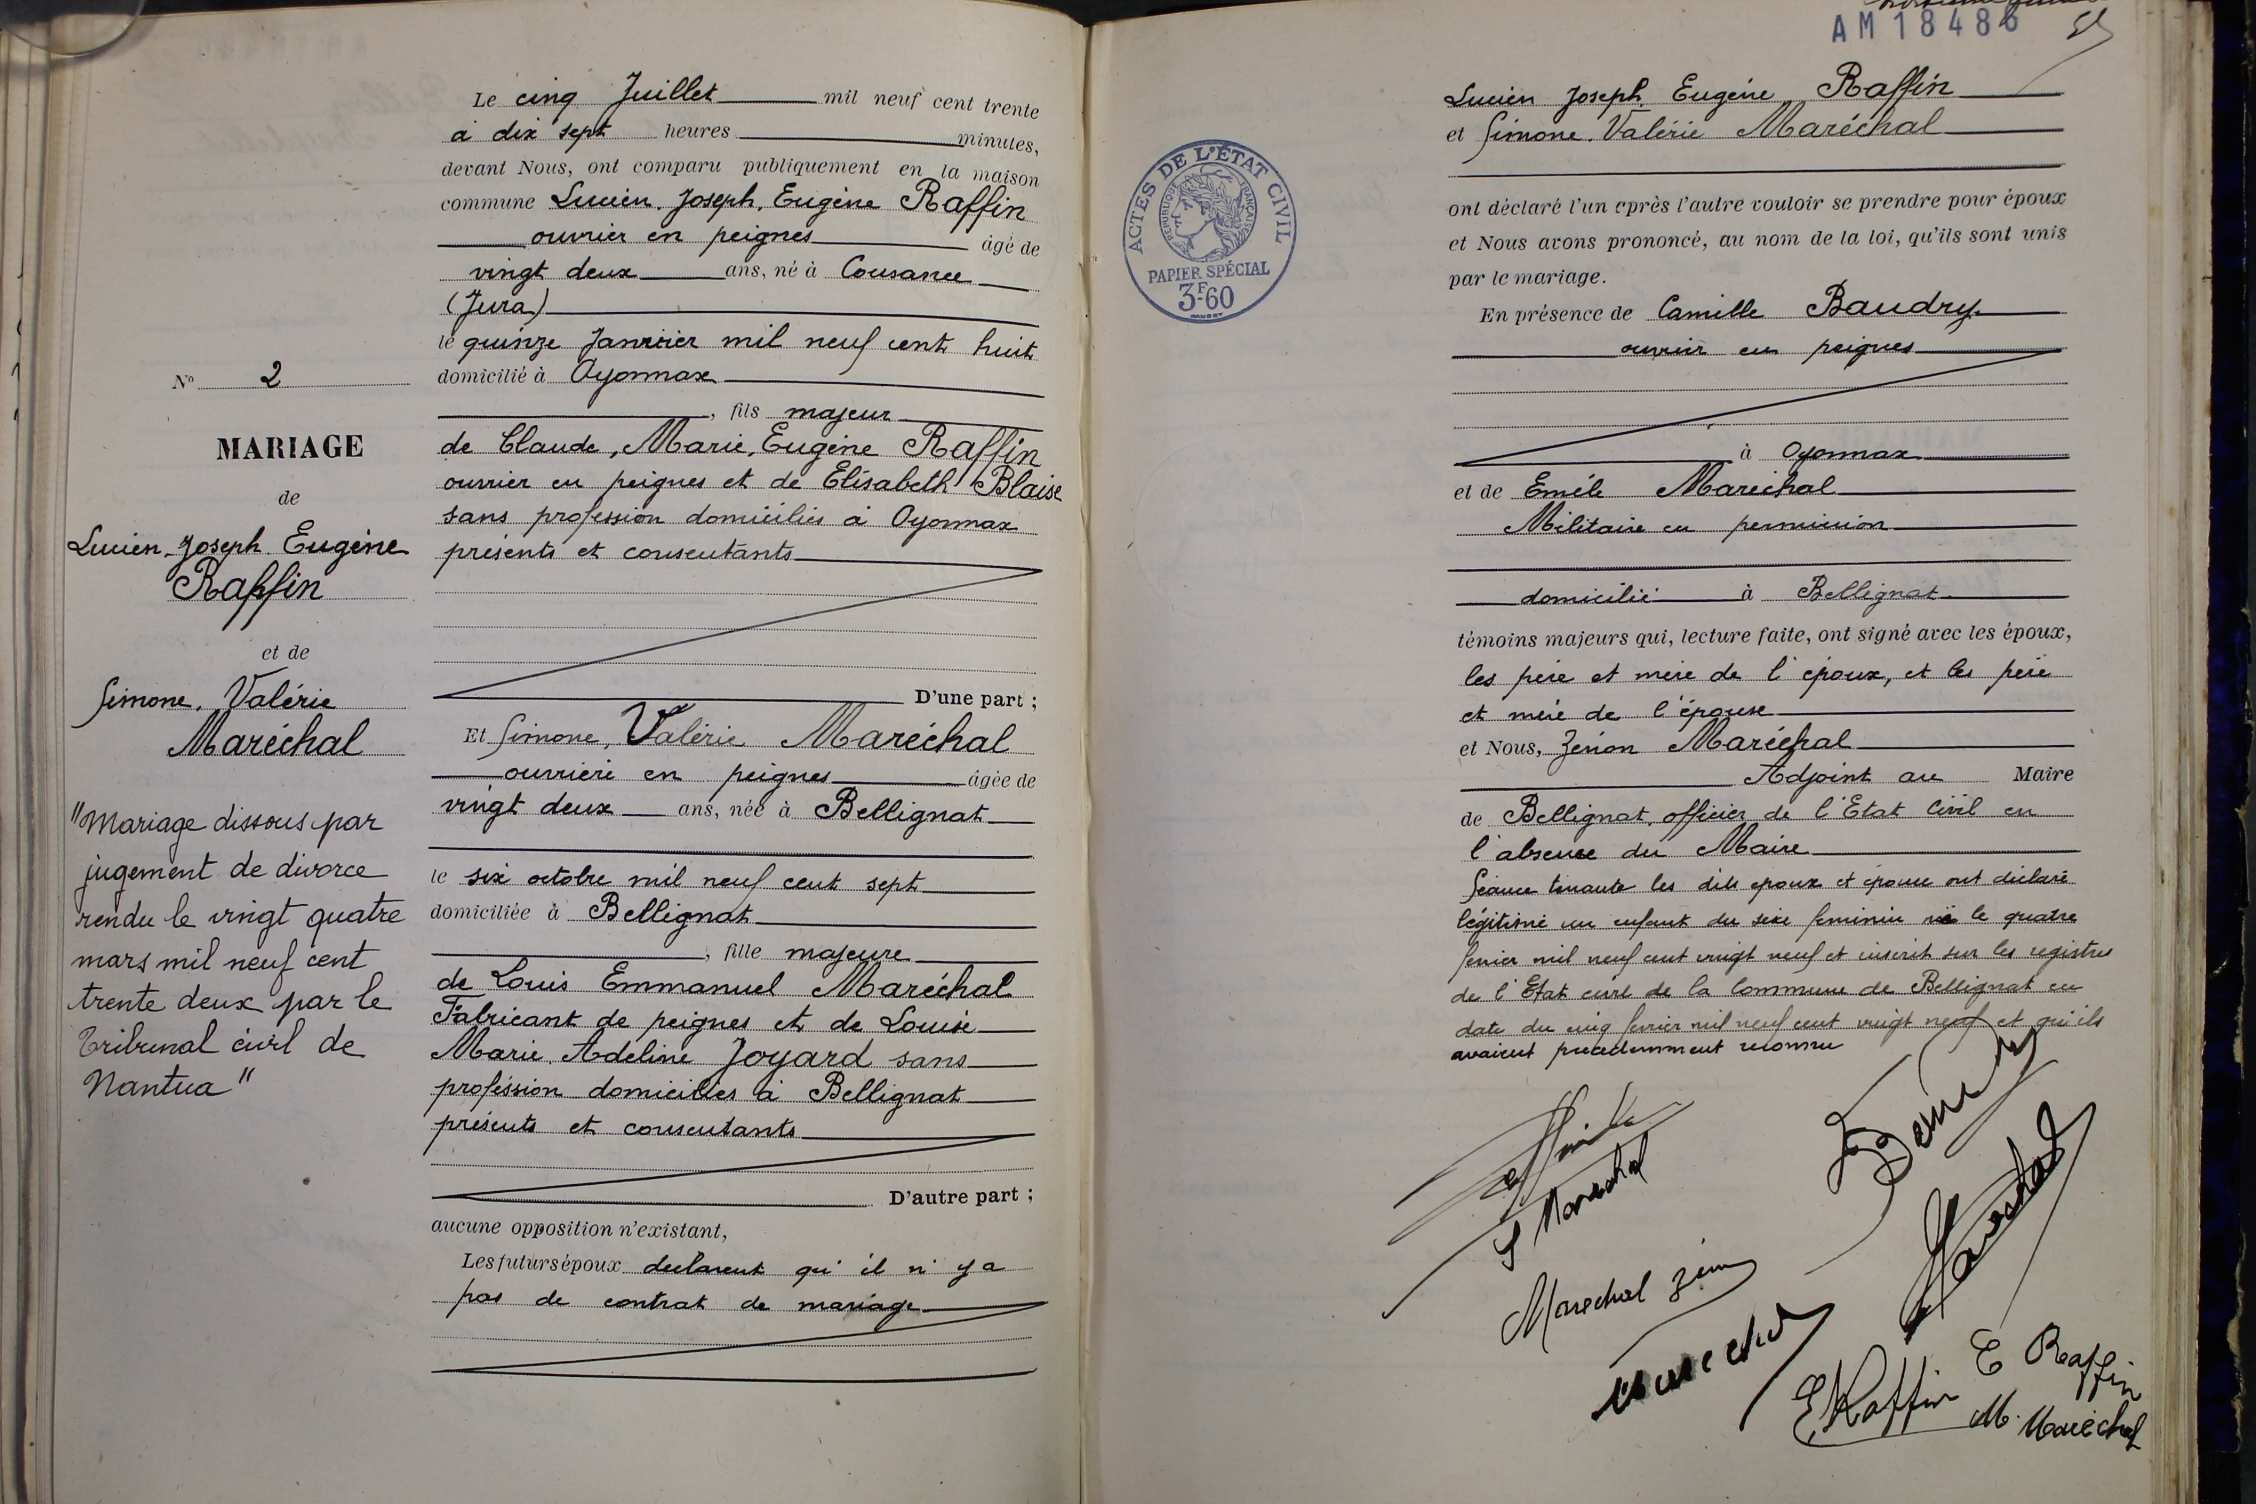 Nº 2
MARIAGE
de
Lucien Joseph Eugène
Raffin
et de
Simone, Valérie
Maréchal
"Mariage dissous par
jugement de divorce
rendu le vingt quatre
mars mil neuf cent
trente deux par le
Tribunal civil de
Nantua"
Le cinq Juillet mil neuf cent trente
à dix sept heures minutes,
devant Nous, ont comparu publiquement en la maison
commune Lucien, Joseph, Eugène Raffin
ouvrier en peignes âgé de
vingt deux ans, né à Cousance
(Jura)
le quinze Janvier mil neuf cent huit
domicilié à Oyonnax
, fils majeur
de Claude, Marie, Eugène Raffin
ouvrier en peignes et de Elisabeth Blaise
sans profession domiciliés à Oyonnax
présents et consentants
D'une part ;
Et Simone, Valérie Maréchal
ouvrière en peignes âgée de
vingt deux ans, née à Bellignat
le six octobre mil neuf cent sept
domiciliée à Bellignat
, fille majeure
de Louis Emmanuel Maréchal
Fabricant de peignes et de Louise
Marie Adeline Joyard sans
profession domiciliés à Bellignat
présents et consentants
D'autre part ;
aucune opposition n'existant,
Les futurs époux déclarent qu'il n'y a
pas de contrat de mariage
AM 18486
ACTES DE L'ÉTAT CIVIL
RÉPUBLIQUE FRANÇAISE
PAPIER SPÉCIAL
3F60
Lucien Joseph Eugène Raffin
et Simone, Valérie Maréchal
ont déclaré l'un après l'autre vouloir se prendre pour époux
et Nous avons prononcé, au nom de la loi, qu'ils sont unis
par le mariage.
En présence de Camille Baudry
ouvrier en peignes
à Oyonnax
et de Emile Maréchal
Militaire en permission
domicilié à Bellignat
témoins majeurs qui, lecture faite, ont signé avec les époux,
les père et mère de l'époux, et les père
et mère de l'épouse
et Nous, Zénon Maréchal
Adjoint au Maire
de Bellignat, officier de l'Etat Civil en
l'absence du Maire
Séance tenante les dits époux et épouse ont déclaré
légitimé un enfant du sexe féminin né le quatre
fevrier mil neuf cent vingt neuf et inscrit sur les registres
de l'Etat civil de la Commune de Bellignat en
date du cinq fevrier mil neuf cent vingt neuf et qu'ils
avaient précédemment reconnu
S Marechal
Marechal Zénon
Marechal
E Raffin
E Raffin
M. Maréchal